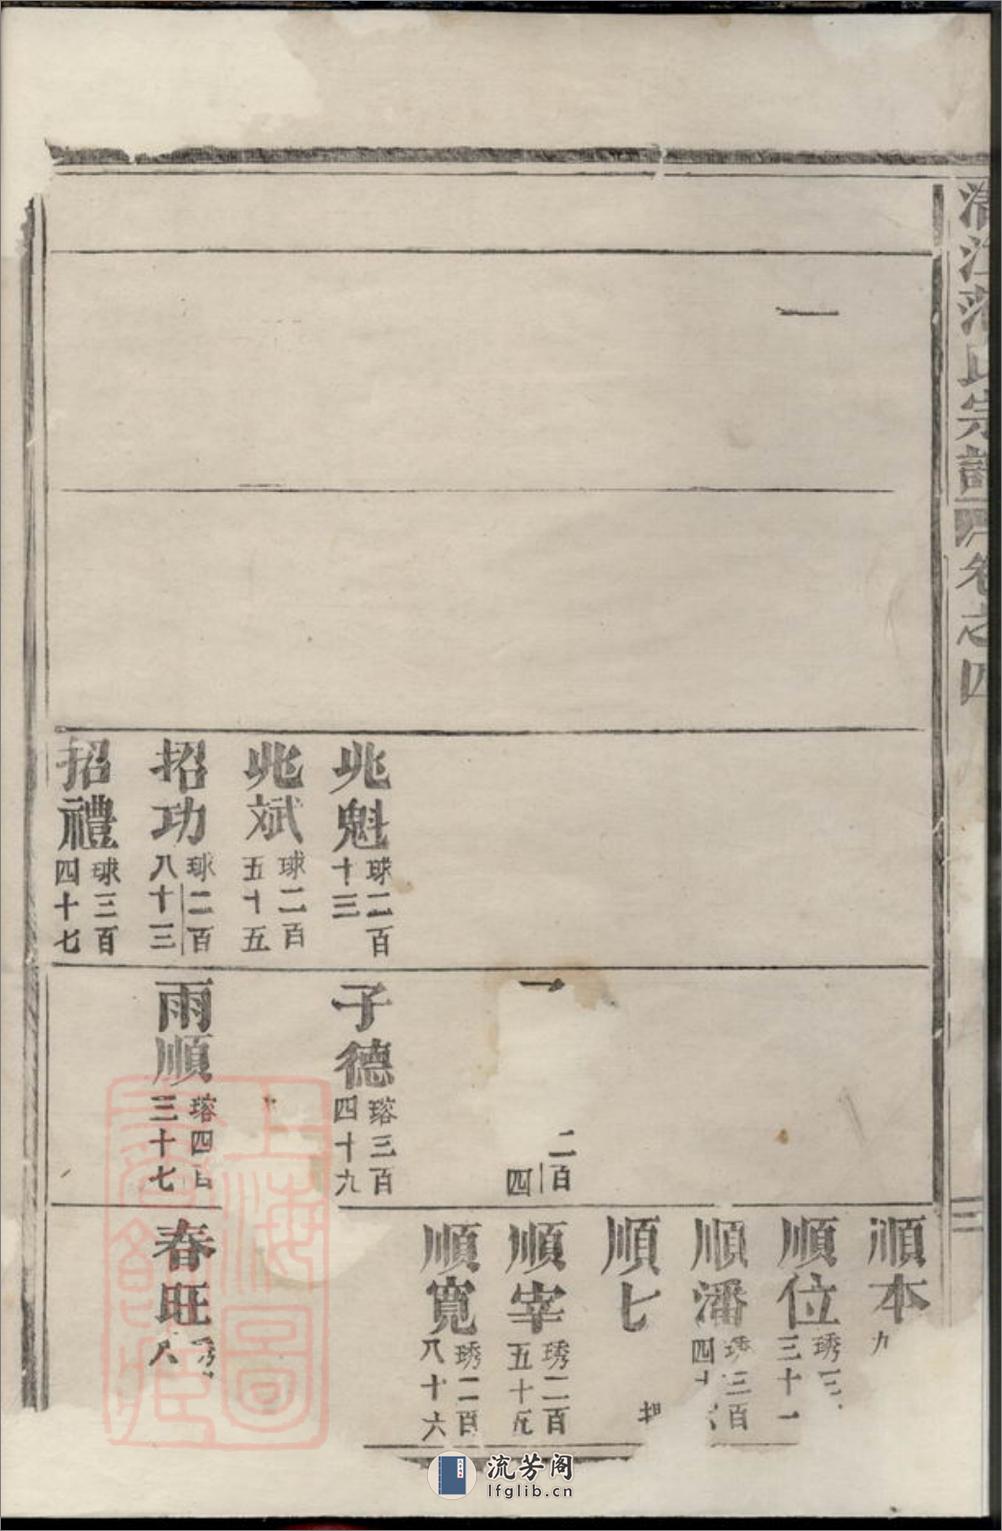 清江范氏宗譜
卷之四
二
一
兆魁
球二百
十三
兆斌
球二百
五十五
招功
球二百
八十三
招禮
球三百
四十七
一
二百
四
子德
瑢三百
四十九
雨順
瑢四百
三十七
順本
九
順位
琇三
三十一
順潘
琇三百
四十
順七
順宰
琇二百
五十
順寬
琇二百
八十六
春旺
琇
八
上海圖書館藏
流芳阁
lfglib.cn